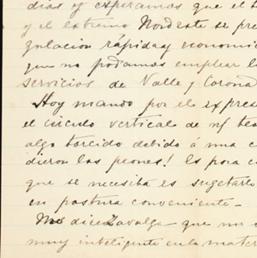 dias y esperamos que el
y el extremo Nordeste se pre
gulacion rápidas y economic
que no podamos emplear l
servicios de Valle y Corona
Hoy mando por el expres
el circulo vertical de
algo torcido debido á una c
dieron los peones! Es poca c
que se necesita es sugetarlo
en postura conveniente.
Me dice Zavalza que no
muy inteligente en la mater